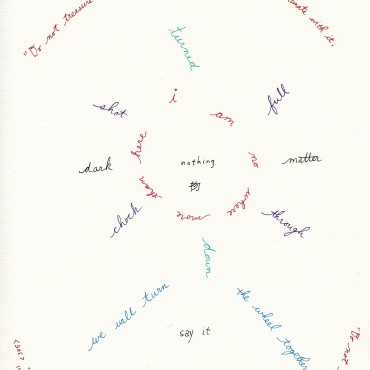 "Do not treasure
nate with it.
turned
shot
i
am
full
here
no
dark
nothing
matter
物
where
chock
now
through
down
we will turn
the wheel together
say it
"Do not